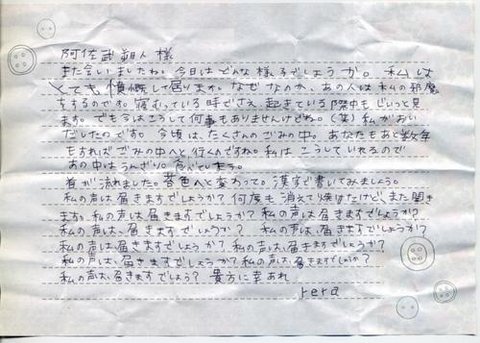 阿佐武朝人 様
また会いましたね。今日はどんな様子でしょうか。私は
とても憤慨して居ります。なぜなのか、あの人は私の邪魔
をするのです。寝むっている時でさえ、起きている際中もじいっと見
ます。でも今はこうして何事もありませんけどね。(笑)私がおい
だしたのです。今頃は、たくさんのごみの中。あなたもあと数年
もすればごみの中へと行くんですね。私はこうしていれるので
あの中はうんざり。
が流れました。色へと変わって。漢字で書いてみましょう。
私の声は届きますでしょうか?何度も消えて頂けたけど、また聞き
ます。私の声は届きますでしょうか?私の声は、届きますでしょうか?
私の声は、届きますでしょうか?私の声は、届きますでしょうか?
私の声は届きますでしょうか?私の声は、届きますでしょうか?
私の声は、届きますでしょうか?私の声は、届きますでしょうか?
私の声は、届きますでしょう?貴方に幸あれ
rera